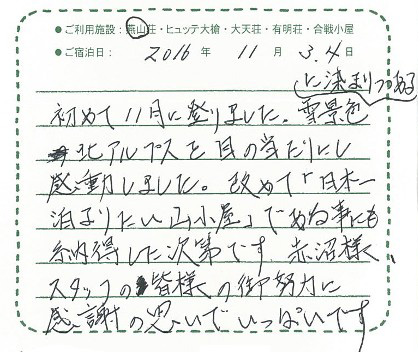 ●ご利用施設：燕山荘・ヒュッテ大槍・大天荘・有明荘・合戦小屋
●ご宿泊日： 2016 年 11 月 3.4 日
に染まりつつある
初めて11月に登りました。雪景色
北アルプスを目の当たりにし
感動しました。改めて「日本一
泊まりたい山小屋」である事にも
納得した次第です 赤沼様、
スタッフの皆様の御努力に
感謝の思いでいっぱいです